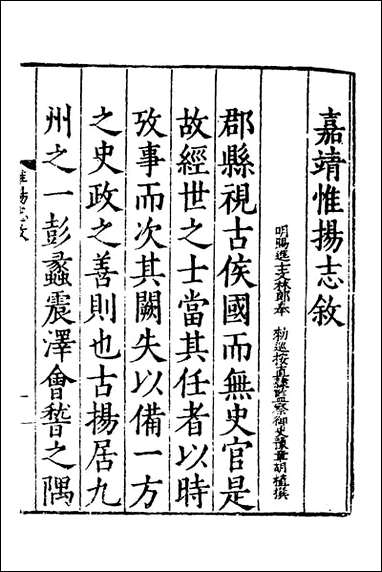 嘉靖惟揚志敘
明賜進士文林郎奉 勑巡按直隸監察御史豫章胡植撰
郡縣視古侯國而無史官是
故經世之士當其任者以時
攷事而次其闕失以備一方
之史政之善則也古揚居九
州之一彭蠡震澤會稽之隅
惟揚志敘